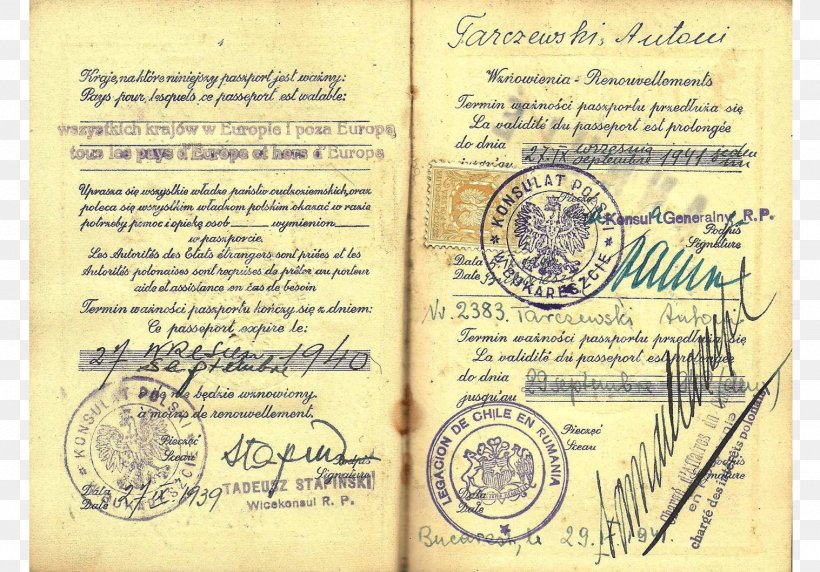 4
Kraje, na które niniejszy paszport jest ważny:
Pays pour lesquels ce passeport est valable:
wszystkich krajów w Europie i poza Europą
tous les pays d'Europe et hors d'Europe
Uprasza się wszystkie władze państw cudzoziemskich, oraz
poleca się wszystkim władzom polskim okazać w razie
potrzeby pomoc i opiekę osob____ wymienion____
w paszporcie.
Les Autorités des Etats étrangers sont priées et les
Autorités polonaises sont requises de prêter au porteur
aide et assistance en cas de besoin
Termin ważności paszportu kończy się z dniem:
Ce passeport expire le:
27 września 1940
septembre
nie będzie wznowiony.
à moins de renouvellement.
KONSULAT POLSKI
Pieczęć
Sceau
Podpis
Signature
Data
Date
27 IX 1939
TADEUSZ STAPIŃSKI
Wicekonsul R. P.
Tarczewski, Antoni
Wznowienia - Renouvellements
Termin ważności paszportu przedłuża się
La validité du passeport est prolongée
do dnia 27.IX września 1941
septembre
KONSULAT POLSKI
W BUKARESZCIE
Pieczęć
Konsul Generalny R.P.
Podpis
Signature
Data
Date
Nr. 2383. Tarczewski Antoni
Termin ważności paszportu przedłuża się
La validité du passeport est prolongée
do dnia 29 septembre
jusqu'au
LEGACION DE CHILE EN RUMANIA
Pieczęć
Sceau
Podpis
Signature
Data
Date
Chargé d'Affaires
chargé des intérêts polonais
Bucarest, le 29. 1941